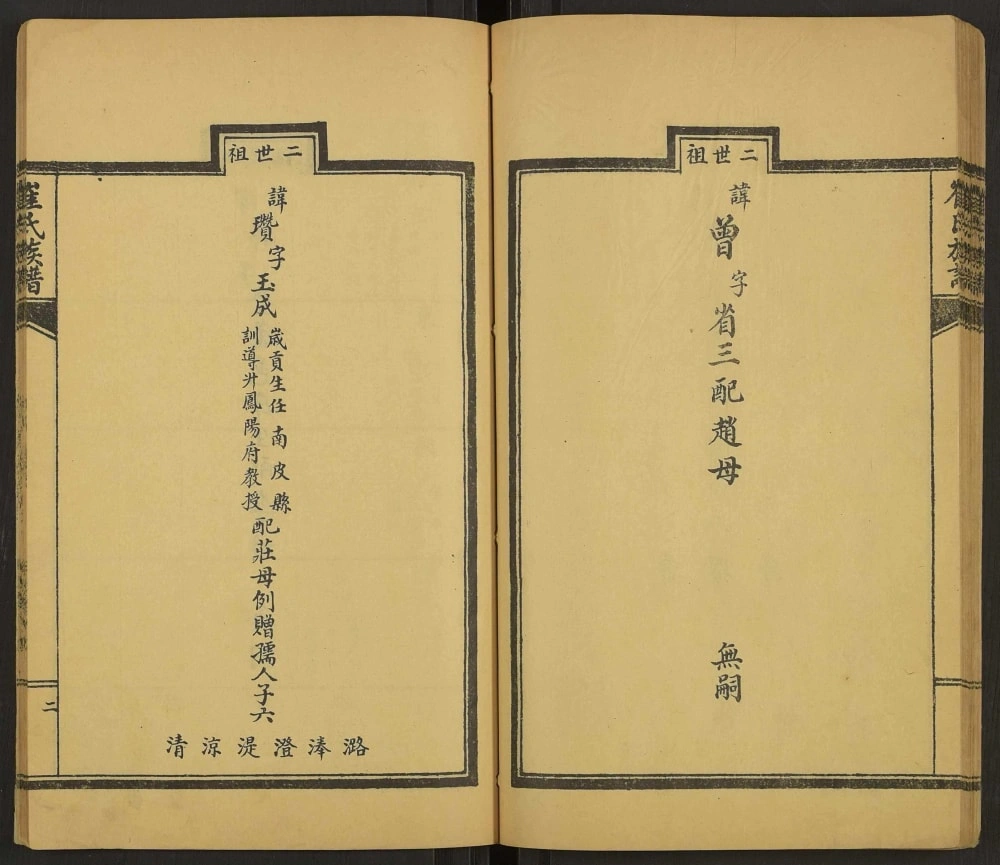 二世祖
諱曾字省三配趙母
無嗣
二世祖
諱瓚字玉成
歲貢生任南皮縣
訓導升鳳陽府教授
配莊母例贈孺人子六
潞
溱
澄
湜
涼
清
崔氏族譜
二